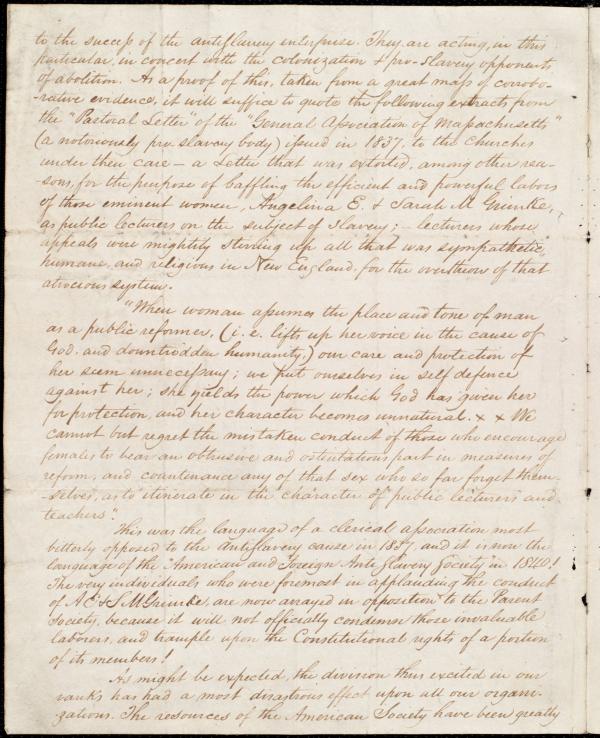 to the success of the antislavery enterprise. They are acting, in this
particular, in concert with the colonization & pro-slavery opponents
of abolition. As a proof of this, taken from a great mass of corrobo-
-rative evidence, it will suffice to quote the following extracts from
the "Pastoral Letter" of the "General Association of Massachusetts"
(a notoriously pro slavery body) issued in 1837, to the churches
under their care – a Letter that was extorted, among other rea-
-sons, for the purpose of baffling the efficient and powerful labors
of those eminent women, Angelina E. & Sarah M Grimke,
as public lecturers on the subject of slavery; – lecturers whose
appeals were mightily stirring up all that was sympathetic,
humane, and religious in New England, for the overthrow of that
atrocious system.
"When woman assumes the place and tone of man
as a public reformer, (i. e. lifts up her voice in the cause of
God, and downtrodden humanity,) our care and protection of
her seem unnecessary; we put ourselves in self defence
against her; she yields the power which God has given her
for protection, and her character becomes unnatural. x x We
cannot but regret the mistaken conduct of those who encourage
females to bear an obtrusive and ostentatious part in measures of
reform, and countenance any of that sex who so far forget them-
-selves, as to itinerate in the character of public lecturers and
teachers".
This was the language of a clerical association most
bitterly opposed to the antislavery cause in 1837, and it is now the
language of the "American and Foreign Anti Slavery Society in 1840!
The very individuals who were foremost in applauding the conduct
of A E & S. M Grimke, are now arrayed in opposition to the Parent
Society, because it will not officially condemn those invaluable
laborers, and trample upon the Constitutional rights of a portion
of its members!
As might be expected, the division thus excited in our
ranks has had a most disastrous effect upon all our organi-
zations. The resources of the American Society have been greatly